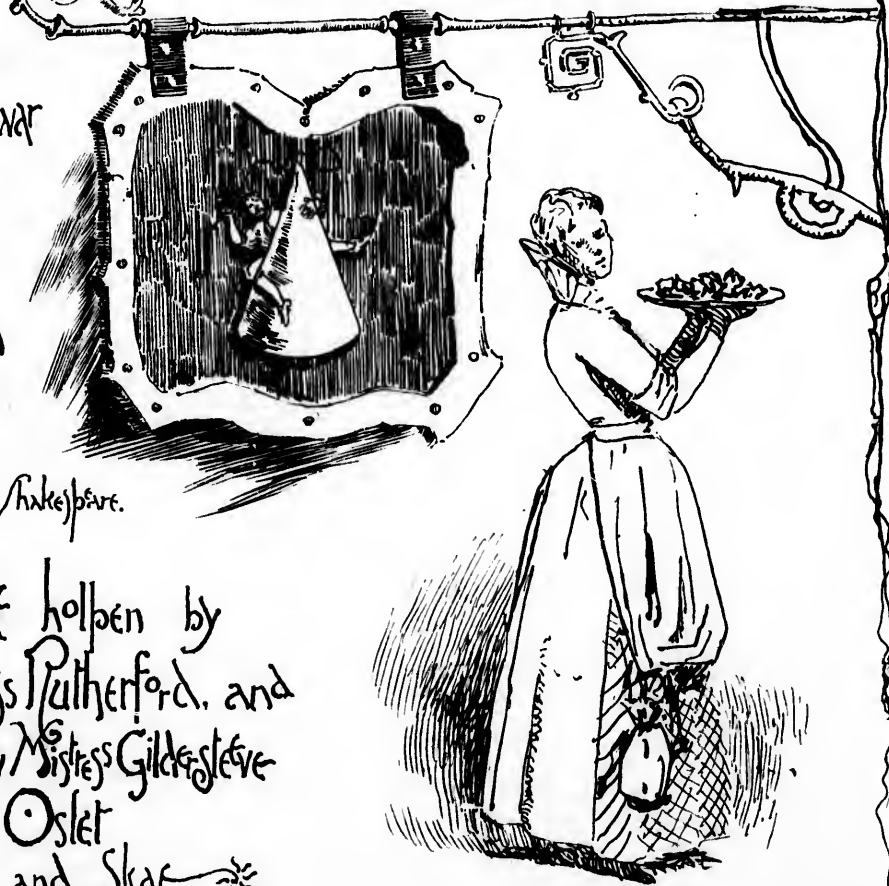 Shakespeare.
holpen by
Rutherford, and
Mistress Gildersleeve
Osler
and